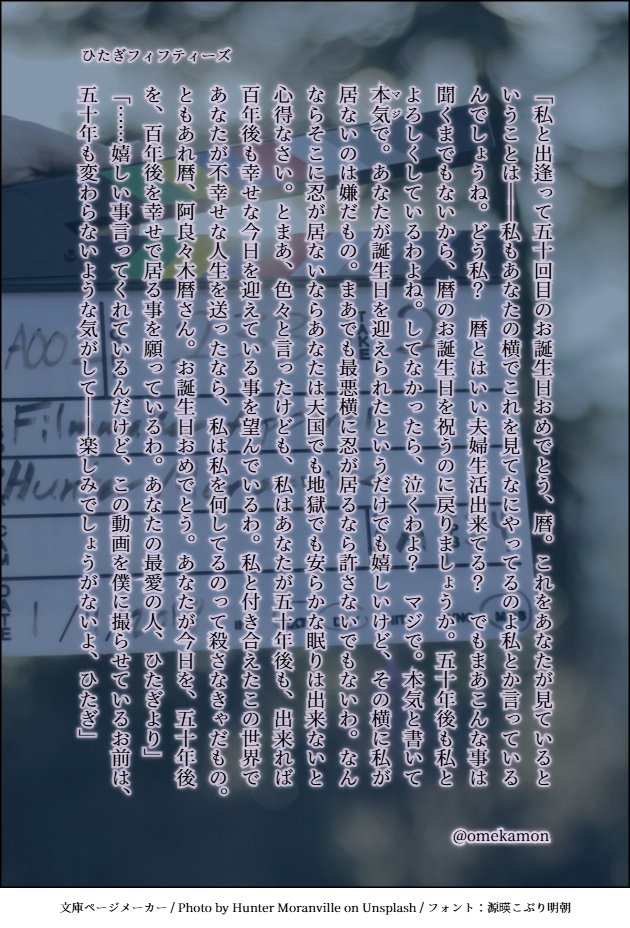 ひたぎフィフティーズ
「私と出逢って五十回目のお誕生日おめでとう、暦。これをあなたが見ていると
いうことは――私もあなたの横でこれを見てなにやってるのよ私とか言っている
んでしょうね。どう私？　暦とはいい夫婦生活出来てる？　でもまあこんな事は
聞くまでもないから、暦のお誕生日を祝うのに戻りましょうか。五十年後も私と
よろしくしているわよね。してなかったら、泣くわよ？　マジで。本気と書いて
本気で。あなたが誕生日を迎えられたというだけでも嬉しいけど、その横に私が
マジ
居ないのは嫌だもの。まあでも最悪横に忍が居るなら許さないでもないわ。なん
ならそこに忍が居ないならあなたは天国でも地獄でも安らかな眠りは出来ないと
心得なさい。とまあ、色々と言ったけども、私はあなたが五十年後も、出来れば
百年後も幸せな今日を迎えている事を望んでいるわ。私と付き合えたこの世界で
あなたが不幸せな人生を送ったなら、私は私を何してるのって殺さなきゃだもの。
ともあれ暦、阿良々木暦さん。お誕生日おめでとう。あなたが今日を、五十年後
を、百年後を幸せで居る事を願っているわ。あなたの最愛の人、ひたぎより」
「……嬉しい事言ってくれているんだけど、この動画を僕に撮らせているお前は、
五十年も変わらないような気がして――楽しみでしょうがないよ、ひたぎ」
@omekamon
A00
TAKE
2
Filmma
Hunter Mora
DATE
文庫ページメーカー / Photo by Hunter Moranville on Unsplash / フォント：源暎こぶり明朝